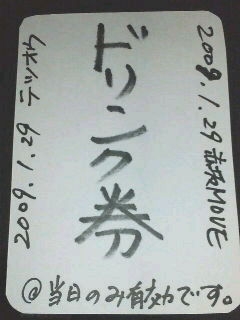 2009.1.29 赤坂MOVE
ドリンク券
2009.1.29 テツオ
@当日のみ有効です。